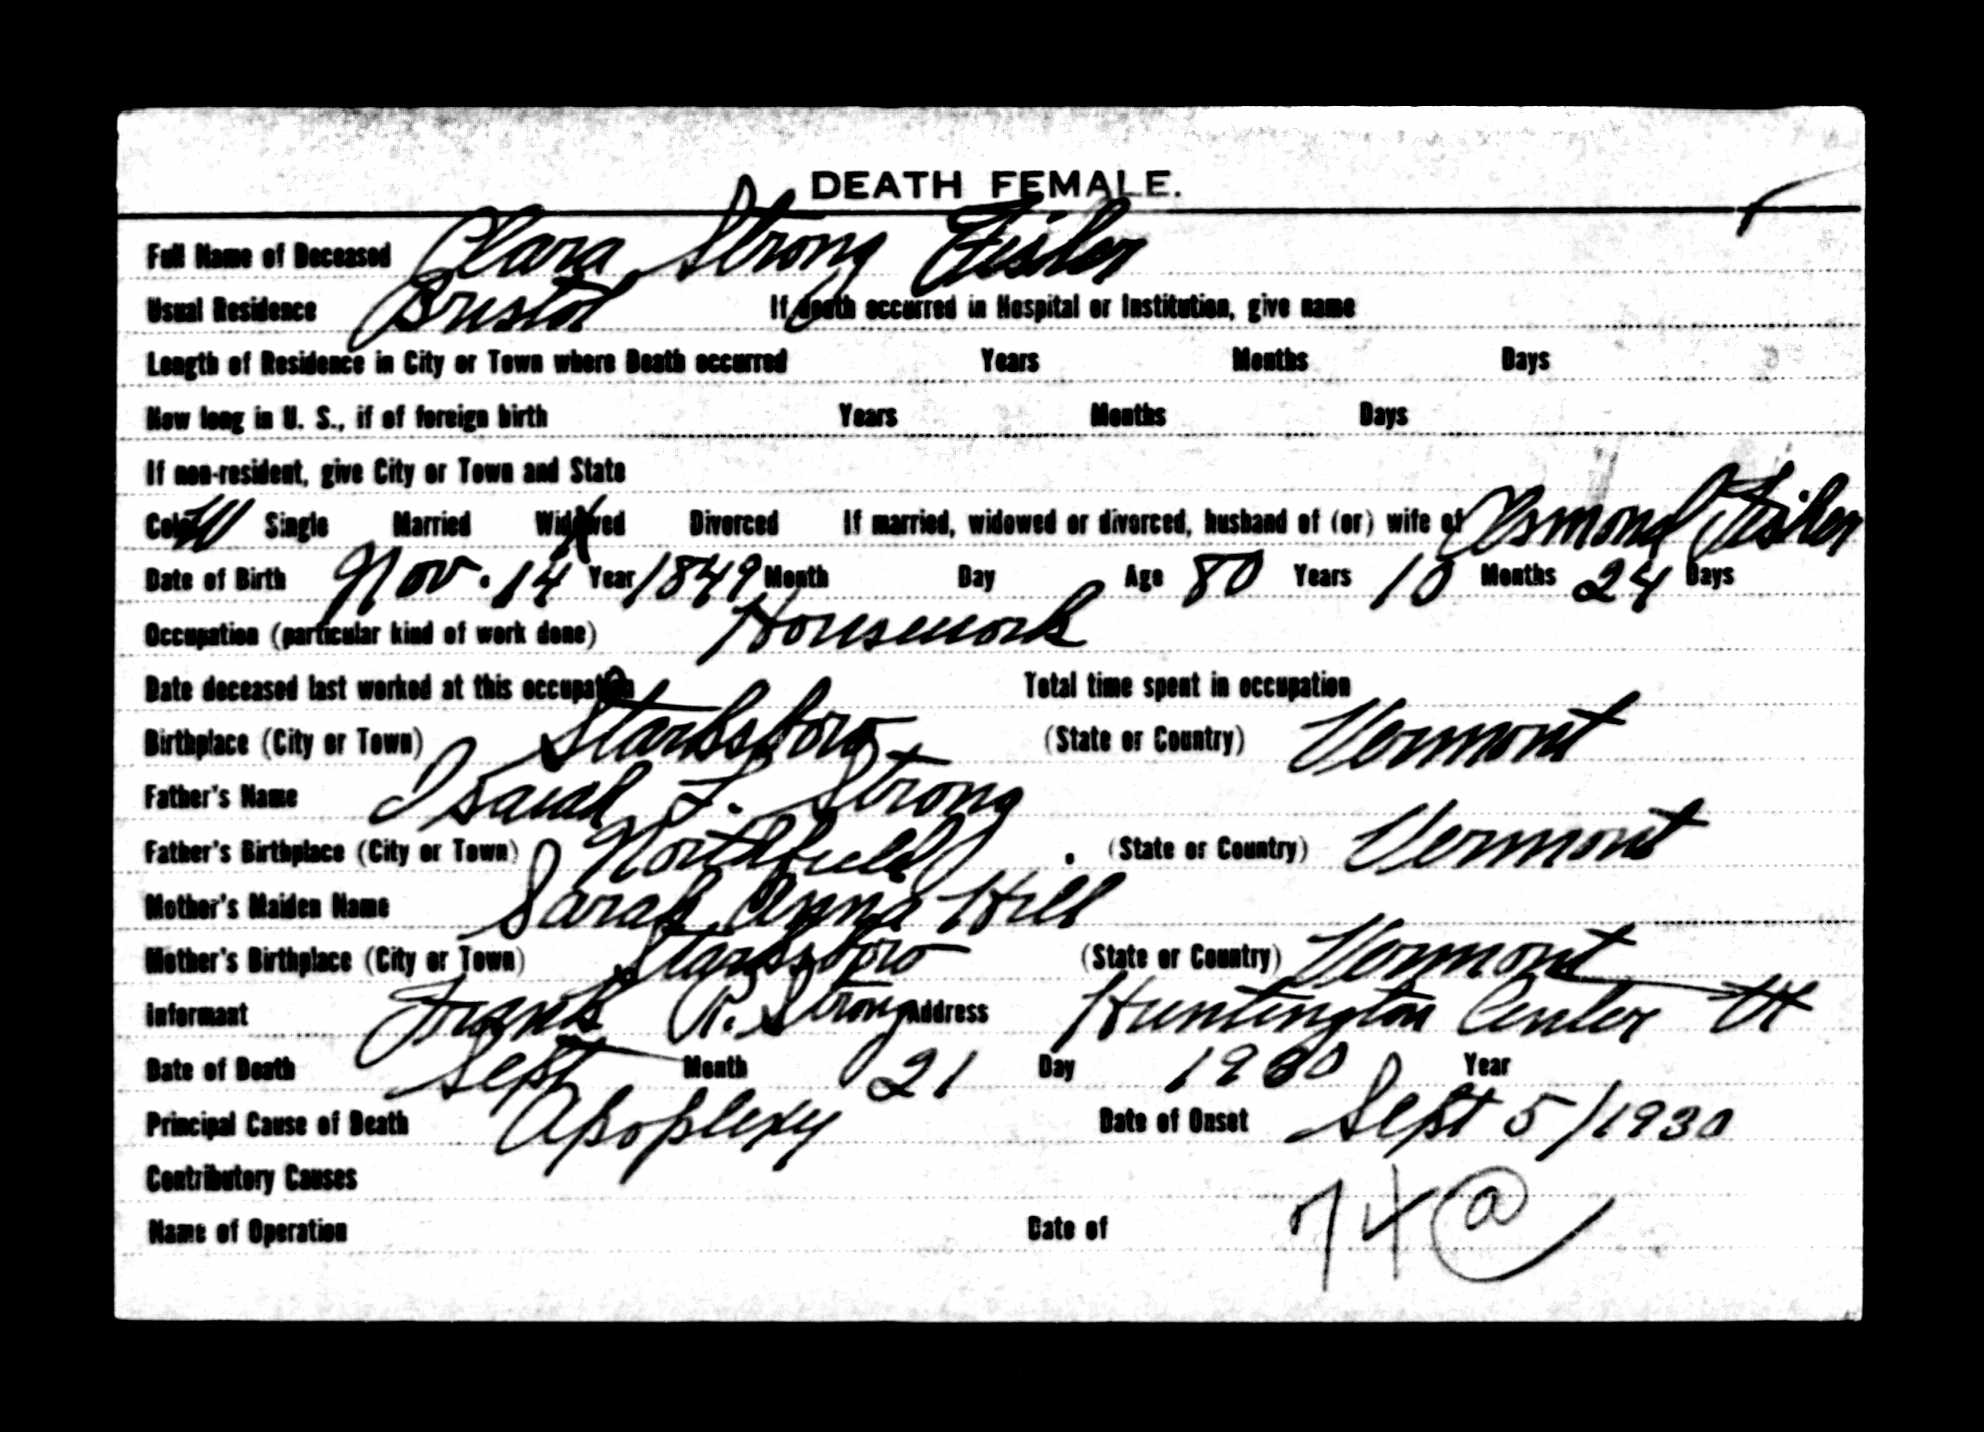 DEATH FEMALE.
Full Name of Deceased Clara Strong Fisher
Usual Residence Bristol If death occurred in Hospital or Institution, give name
Length of Residence in City or Town where Death occurred Years Months Days
How long in U. S., if of foreign birth Years Months Days
If non-resident, give City or Town and State
Color W Single Married Widowed X Divorced If married, widowed or divorced, husband of (or) wife of Osmond Fisher
Date of Birth Nov. 14 Year 1849 Month Day Age 80 Years 10 Months 24 Days
Occupation (particular kind of work done) Housework
Date deceased last worked at this occupation Total time spent in occupation
Birthplace (City or Town) Starksboro (State or Country) Vermont
Father's Name Isaiah F. Strong
Father's Birthplace (City or Town) Northfield (State or Country) Vermont
Mother's Maiden Name Sarah Anna Hill
Mother's Birthplace (City or Town) Starksboro (State or Country) Vermont
Informant Frank R. Strong Address Huntington Center Vt
Date of Death Sept Month 21 Day 1930 Year
Principal Cause of Death Apoplexy Date of Onset Sept 5/1930
Contributory Causes
Name of Operation Date of 74 a